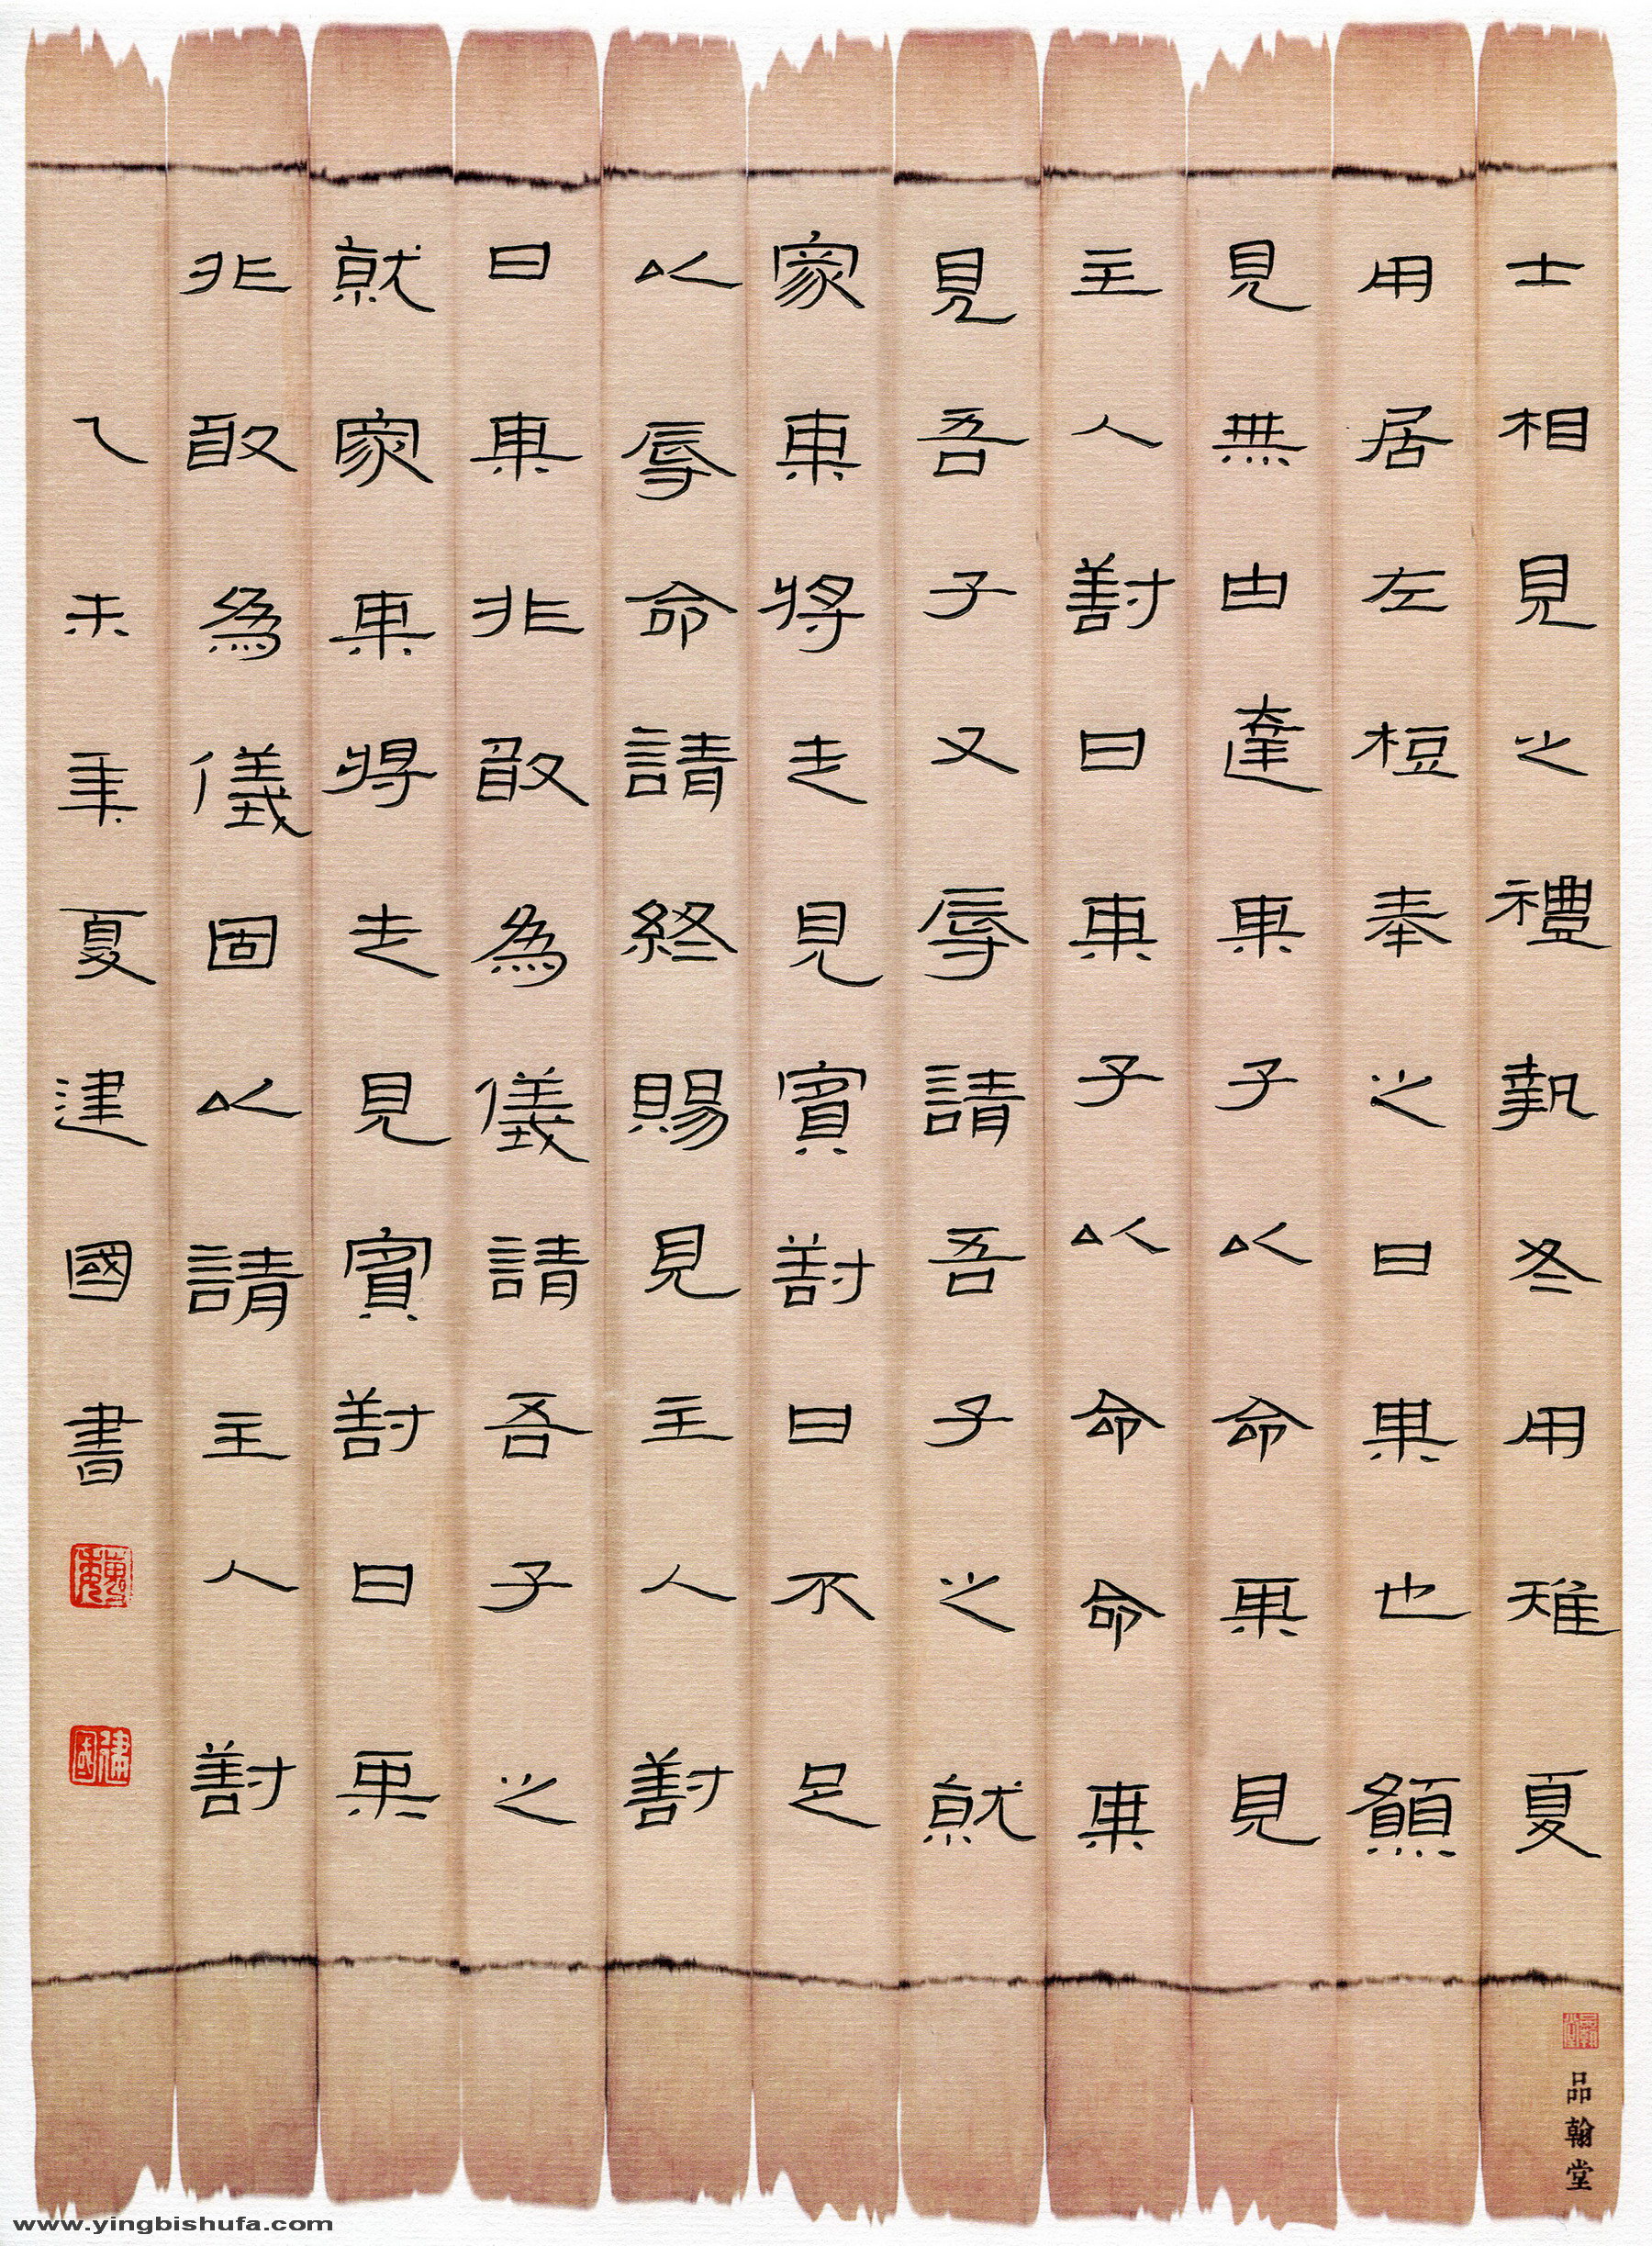 士相見之禮執冬用雉夏
用居左梪奉之曰某也願
見無由達某子以命某見
主人對曰某子以命命某
見吾子又辱請吾子之就
家某將走見賓對曰不足
以辱命請終賜見主人對
曰某非敢為儀請吾子之
就家某將走見賓對曰某
非敢為儀固以請主人對
乙未年夏建國書
建國
品翰堂
www.yingbishufa.com